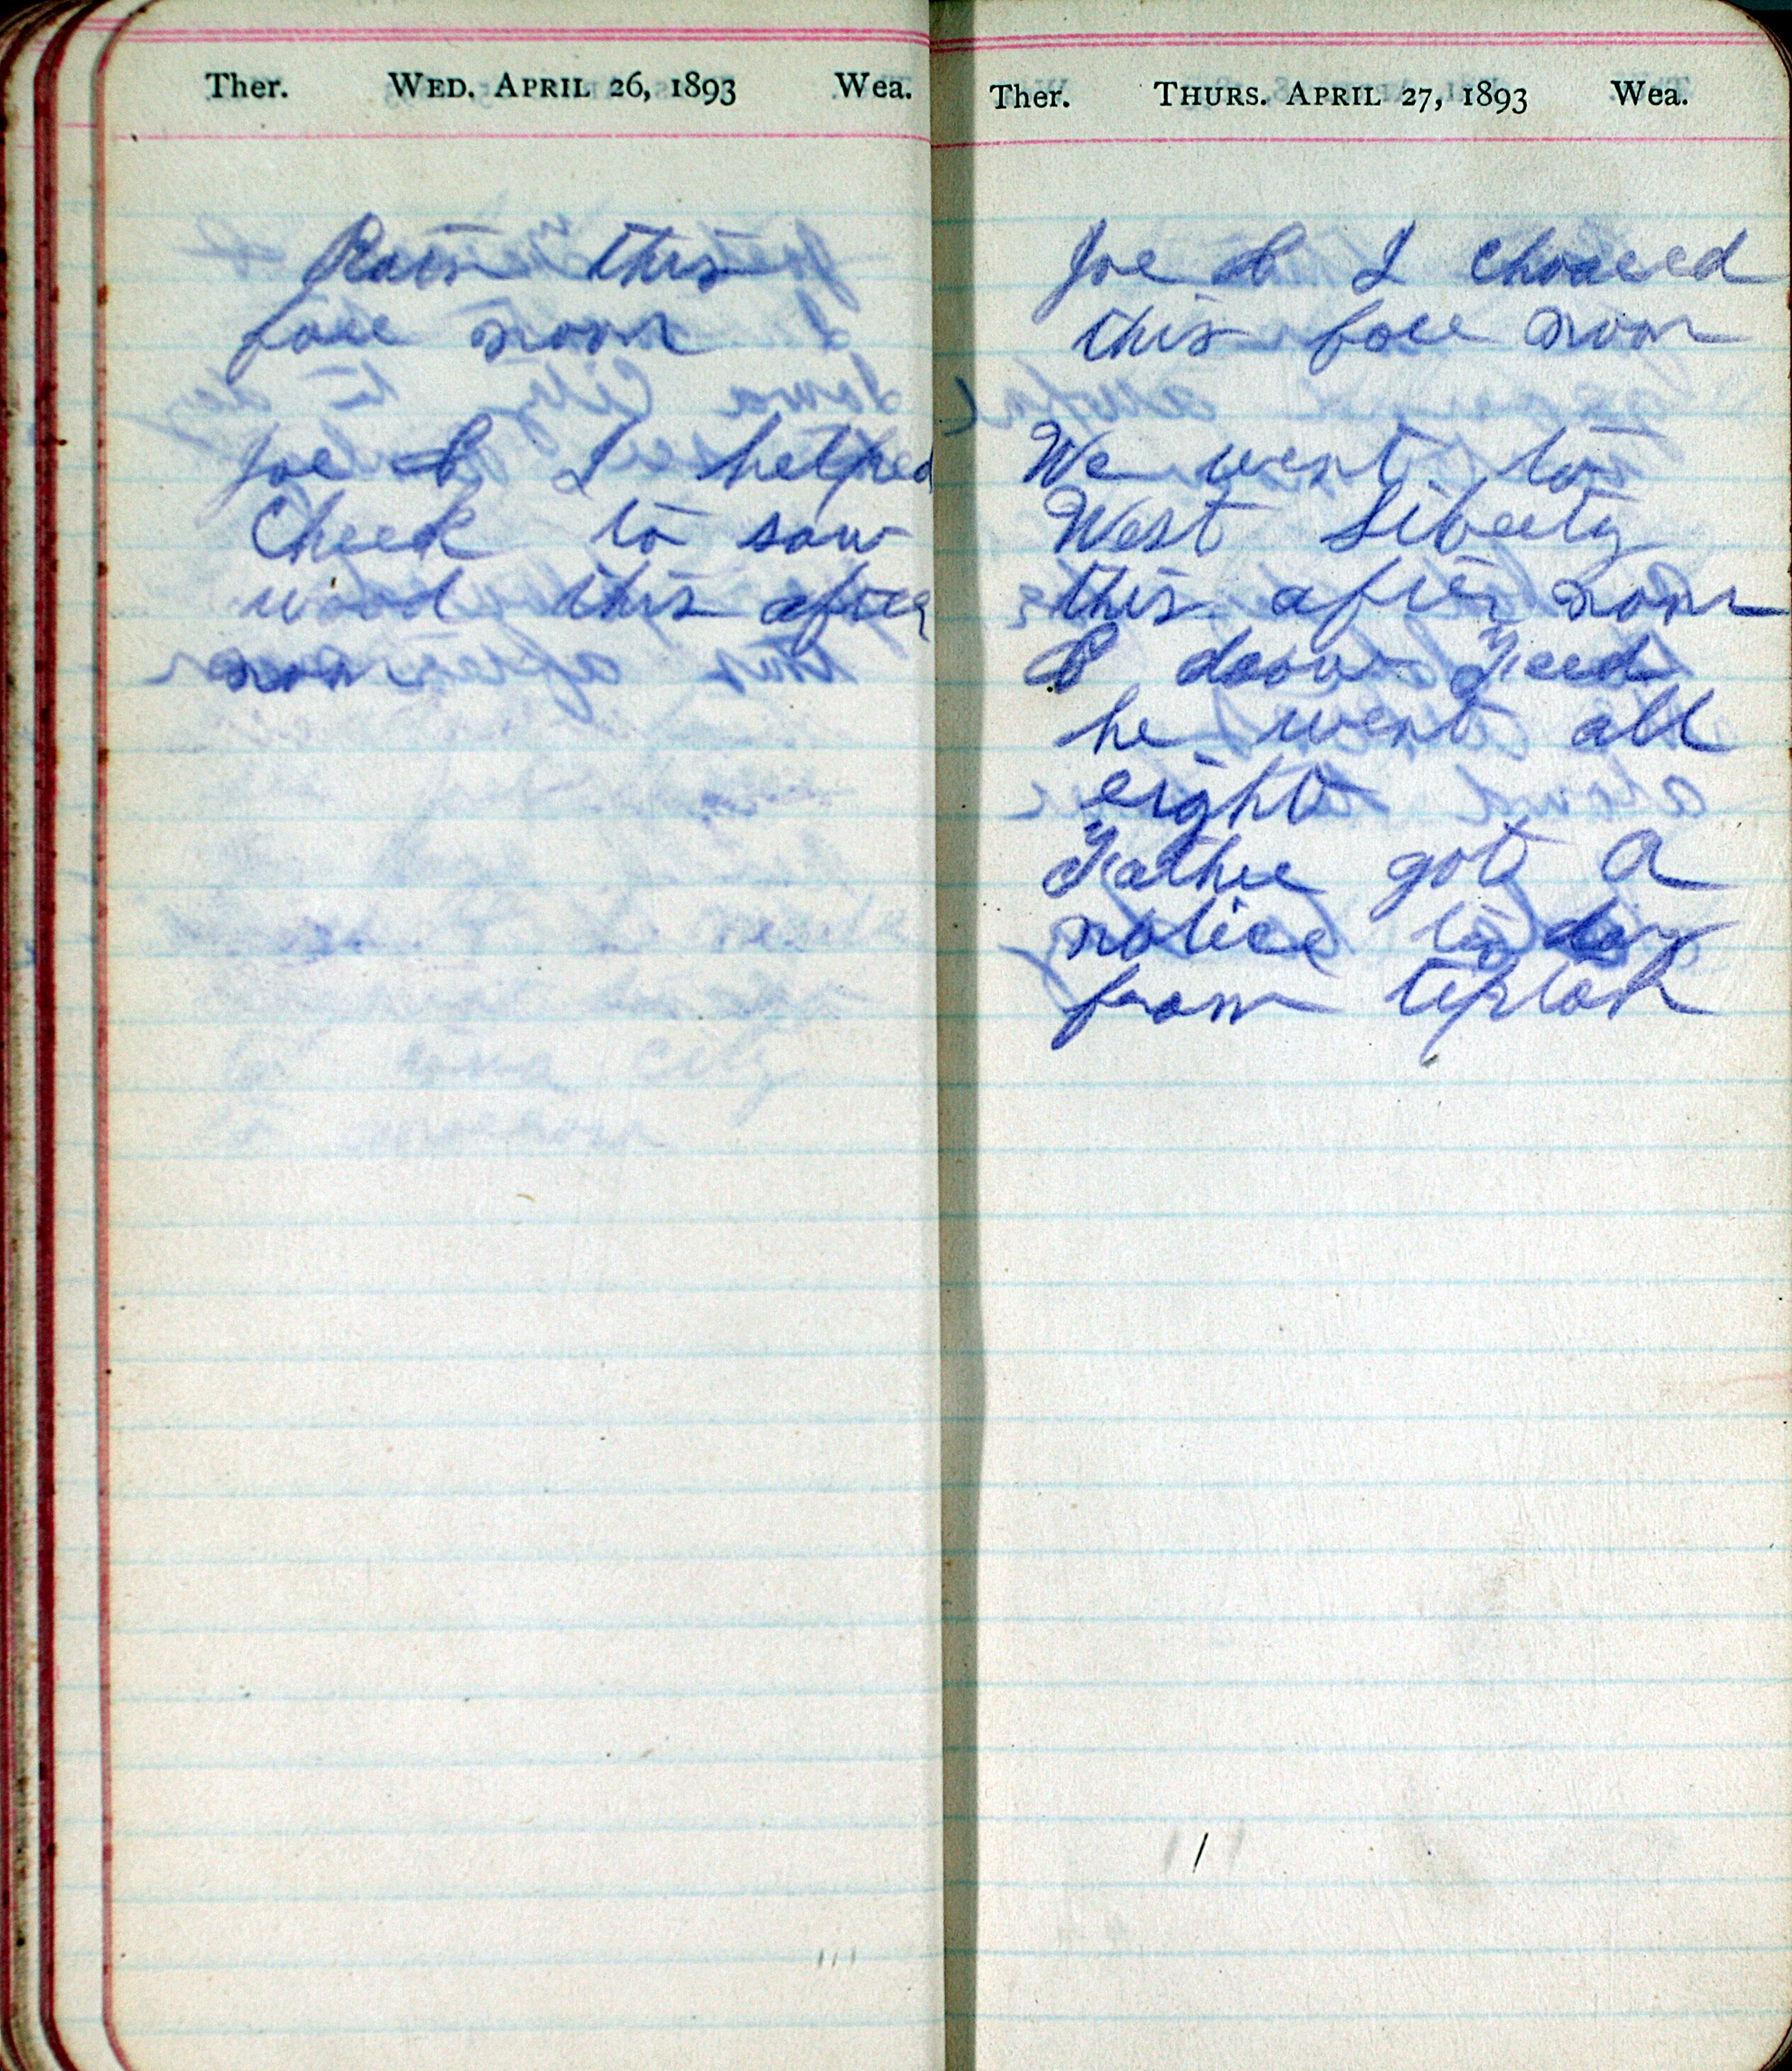 Ther. WED. APRIL 26, 1893 Wea.
Rain this
fore noon
Joe & I helped
Cheek to saw
wood this after
noon
Ther. THURS. APRIL 27, 1893 Wea.
Joe & I choared
this fore noon
We went to
West Liberty
this after noon
& drove Fred
he went all
right
Father got a
notice to day
from tipton